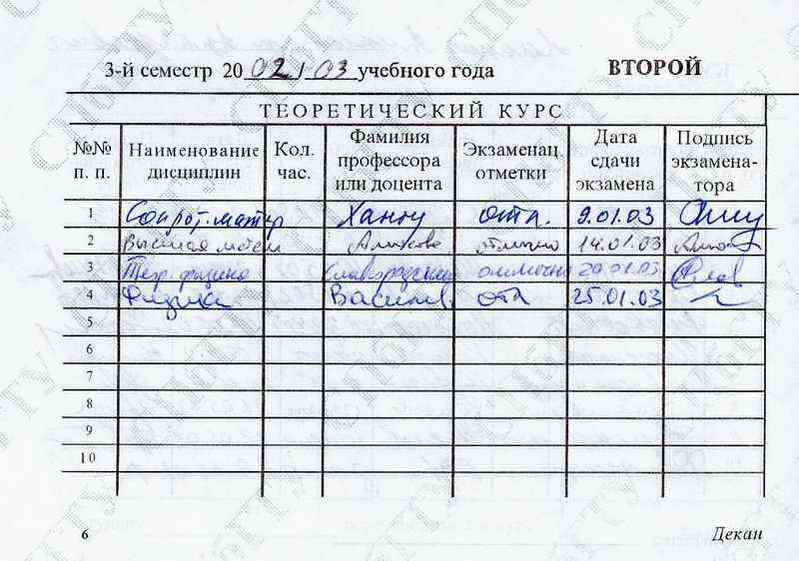 3-й семестр 20 02/03 учебного года ВТОРОЙ
ТЕОРЕТИЧЕСКИЙ КУРС
№№ п. п. Наименование дисциплин Кол. час. Фамилия профессора или доцента Экзаменац. отметки Дата сдачи экзамена Подпись экзамена-тора
1 Сопрот. матер отл. 9.01.03
2 Высшая матем отлично 14.01.03
3 Теор. физика отлично 20.01.03
4 Физика Васильев отл 25.01.03
5
6
7
8
9
10
6 Декан